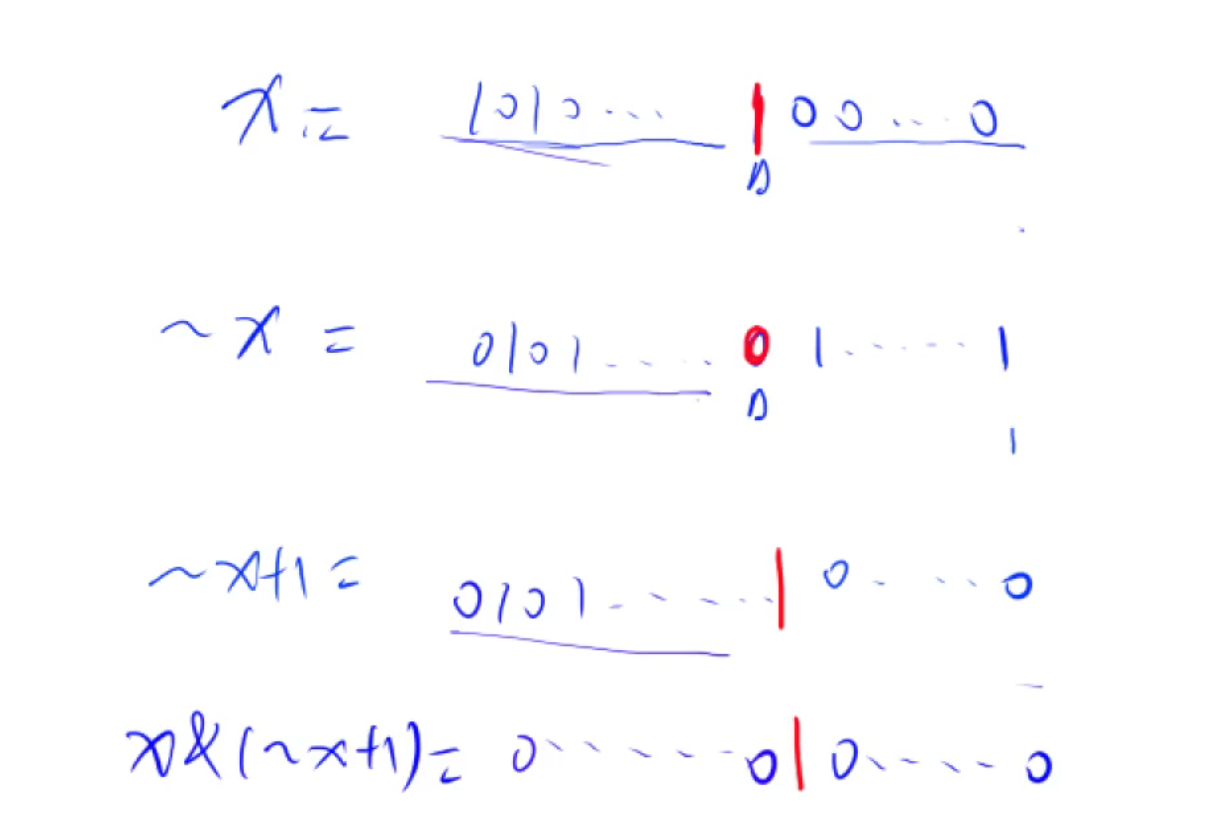 x = 1010... 1 00...0
~x = 0101..... 0 1.......1
1
~x+1 = 0101....... 1 0.....0
x&(~x+1) = 0......0 1 0.....0